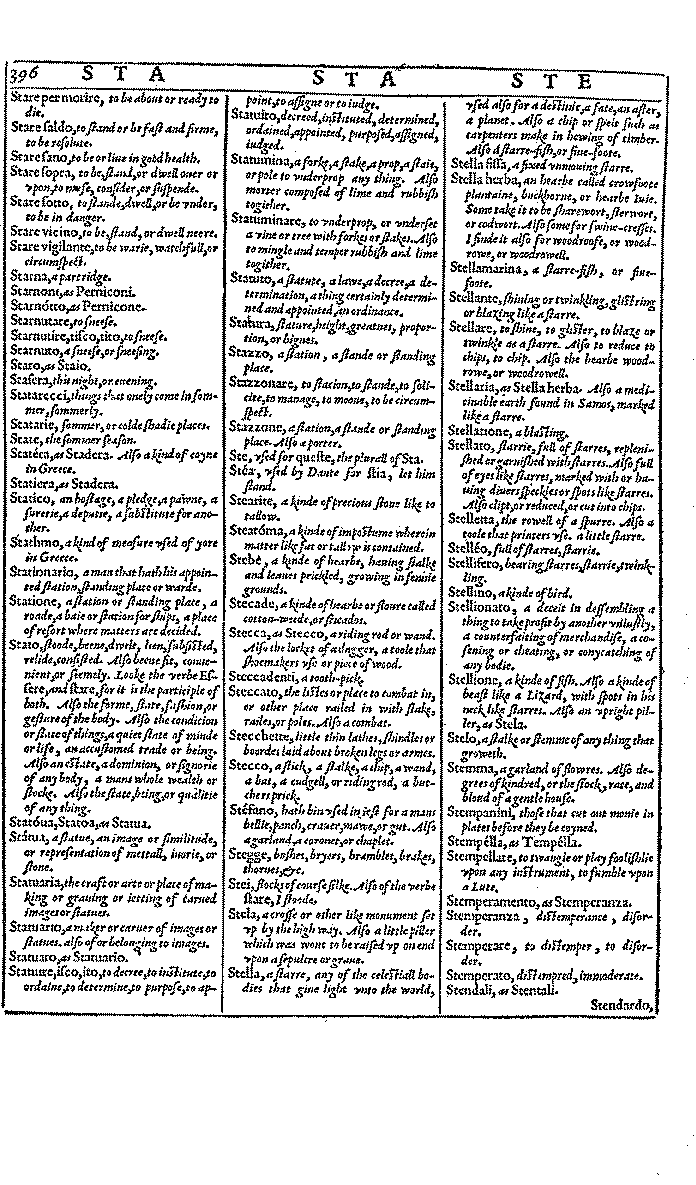 396 S T A S T A S T E
Stare per morire, to be about or ready to
die.
Stare saldo, to stand or be fast and firme,
to be resolute.
Stare sano, to be or liue in good health.
Stare sopra, to be, stand, or dwell ouer or
vpon, to muse, consider, or suspende.
Stare sotto, to stande, dwell, or be vnder,
to be in danger.
Stare vicino, to be, stand, or dwell neere.
Stare vigilante, to be warie, watchfull, or
circumspect.
Starna, a partridge.
Starnoni, as Perniconi.
Starnótto, as Pernicone.
Starnutare, to sneese.
Starnutire, tisco, tito, to sneese.
Starnuto, a sneese, or sneesing.
Staro, as Staio.
Stasera, this night, or euening.
Statarecci, things that onely come in som-
mer, sommerly.
Statarie, sommer, or colde shadie places.
State, the sommer season.
Statéra, as Stadera. Also a kind of coyne
in Greece.
Statiera, as Stadera.
Statico, an hostage, a pledge, a pawne, a
suretie, a deputie, a substitute for ano-
ther.
Stathmo, a kind of measure vsed of yore
in Greece.
Stationario, a man that hath his appoin-
ted station, standing place or warde.
Statione, a station or standing place, a
roade, a baie or station for ships, a place
of resort where matters are decided.
Stato, stoode, beene, dwelt, lien, subsisted,
relide, consisted. Also beene fit, conue-
nient, or seemely. Looke the verbe Es-
sere, and stare, for it is the participle of
both. Also the forme, state, fashion, or
gesture of the body. Also the condition
or state of things, a quiet state of minde
or life, an accustomed trade or being.
Also an estate, a dominion, or signorie
of any body, a mans whole wealth or
stocke. Also the state, being, or qualitie
of any thing.
Statóua, Statoa, as Statua.
Státua, a statue, an image or similitude,
or representation of mettall, iuorie, or
stone.
Statuaria, the craft or arte or place of ma-
king or grauing or setting of carued
images or statues.
Statuario, a maker or caruer of images or
statues. also of or belonging to images.
Statuaro, as Statuario.
Statuire, isco, ito, to decree, to institute, to
ordaine, to determine, to purpose, to ap-
point, to assigne or to iudge.
Statuito, decreed, instituted, determined,
ordained, appointed, purposed, assigned,
iudged.
Statumina, a forke, a stake, a prop, a staie,
or pole to vnderprop any thing. Also
morter composed of lime and rubbish
togither.
Statuminare, to vnderprop, or vnderset
a vine or tree with forkes or stakes. Also
to mingle and temper rubbish and lime
together.
Statuto, a statute, a lawe, a decree, a de-
termination, a thing certainly determi-
ned and appointed, an ordinance.
Statura, stature, height, greatnes, propor-
tion, or bignes.
Stazzo, a station, a stande or standing
place.
Stazzonare, to station, to stande, to solli-
cite, to manage, to mooue, to be circum-
spect.
Stazzone, a station, a stande or standing
place. Also a porter.
Ste, vsed for queste, the plurall of Sta.
Stéa, vsed by Dante for stia, let him
stand.
Stearite, a kinde of precious stone like to
tallow.
Steatóma, a kinde of impostume wherein
matter like fat or tallow is contained.
Stebe, a kinde of hearbe, hauing stalke
and leaues prickled, growing in fennie
grounds.
Stecade, a kinde of hearbe or floure called
cotton-weede, or sticados.
Stecca, as Stecco, a riding rod or wand.
Also the locket of a dagger, a toole that
shoemakers vse or piece of wood.
Steccadenti, a tooth-pick.
Steccato, the listes or place to combat in,
or other place railed in with stake,
railes, or poles. Also a combat.
Stecchette, little thin lathes, shindles or
boordes laid about broken legs or armes.
Stecco, a stick, a stalke, a chip, a wand,
a bat, a cudgell, or riding rod, a but-
chers prick.
Stéfano, hath bin vsed in iest for a mans
bellie, panch, crauer, mawe, or gut. Also
a garland, a coronet, or chaplet.
Stegge, bushes, bryers, brambles, brakes,
thornes, &c.
Stei, stocks of course silke. Also of the verbe
stare, I stoode.
Stela, a crosse or other like monument set
vp by the high way. Also a little piller
which was wont to be raised vp on end
vpon a sepulcre or graue.
Stella, a starre, any of the celestiall bo-
dies that giue light vnto the world,
vsed also for a destinie, a fate, an aster,
a planet. Also a chip or speis such as
carpenters make in hewing of timber.
Also a starre-fish, or fiue-foote.
Stella fissa, a fixed vnmouing starre.
Stella herba, an hearbe called crowfoote
plantaine, buckhorne, or hearbe Iuie.
Some take it to be sharewort, sterwort,
or codwort. Also some for swine-cresses.
I finde it also for woodroofe, or wood-
rowe, or woodrowell.
Stellamarina, a starre-fish, or fiue-
foote.
Stellante, shining or twinkling, glistring
or blazing like a starre.
Stellare, to shine, to glister, to blaze or
twinkle as a starre. Also to reduce to
chips, to chip. Also the hearbe wood-
rowe, or woodrowell.
Stellaria, as Stella herba. Also a medi-
cinable earth found in Samos, marked
like a starre.
Stellatione, a blasting.
Stellato, starrie, full of starres, repleni-
shed or garnished with starres. Also full
of eyes like starres, marked with or ha-
uing diuers speckles or spots like starres.
Also clipt, or reduced, or cut into chips.
Stelletta, the rowell of a spurre. Also a
toole that printers vse. a little starre.
Stelléo, full of starres, starrie.
Stellifero, bearing starres, starrie, twink-
ling.
Stellino, a kinde of bird.
Stellionato, a deceit in dessembling a
thing to take profit by another vniustly,
a counterfaiting of merchandise, a co-
sening or cheating, or conycatching of
any bodie.
Stellione, a kinde of fish. Also a kinde of
beast like a Lizard, with spots in his
neck like starres. Also an vpright pil-
ler, as Stela.
Stelo, a stalke or stemme of any thing that
groweth.
Stemma, a garland of flowres. Also de-
grees of kindred, or the stock, rate, and
bloud of a gentle house.
Stempanini, those that cut out monie in
plates before they be coyned.
Stempélla, as Tempélla.
Stempellate, to twangle or play foolishlie
vpon any instrument, to fumble vpon
a Lute.
Stemperamento, as Stemperanza.
Stemperanza, distemperance, disor-
der.
Stemperare, to distemper, to disor-
der.
Stemperato, distempred, immoderate.
Stendali, as Stentali.
Stendardo,